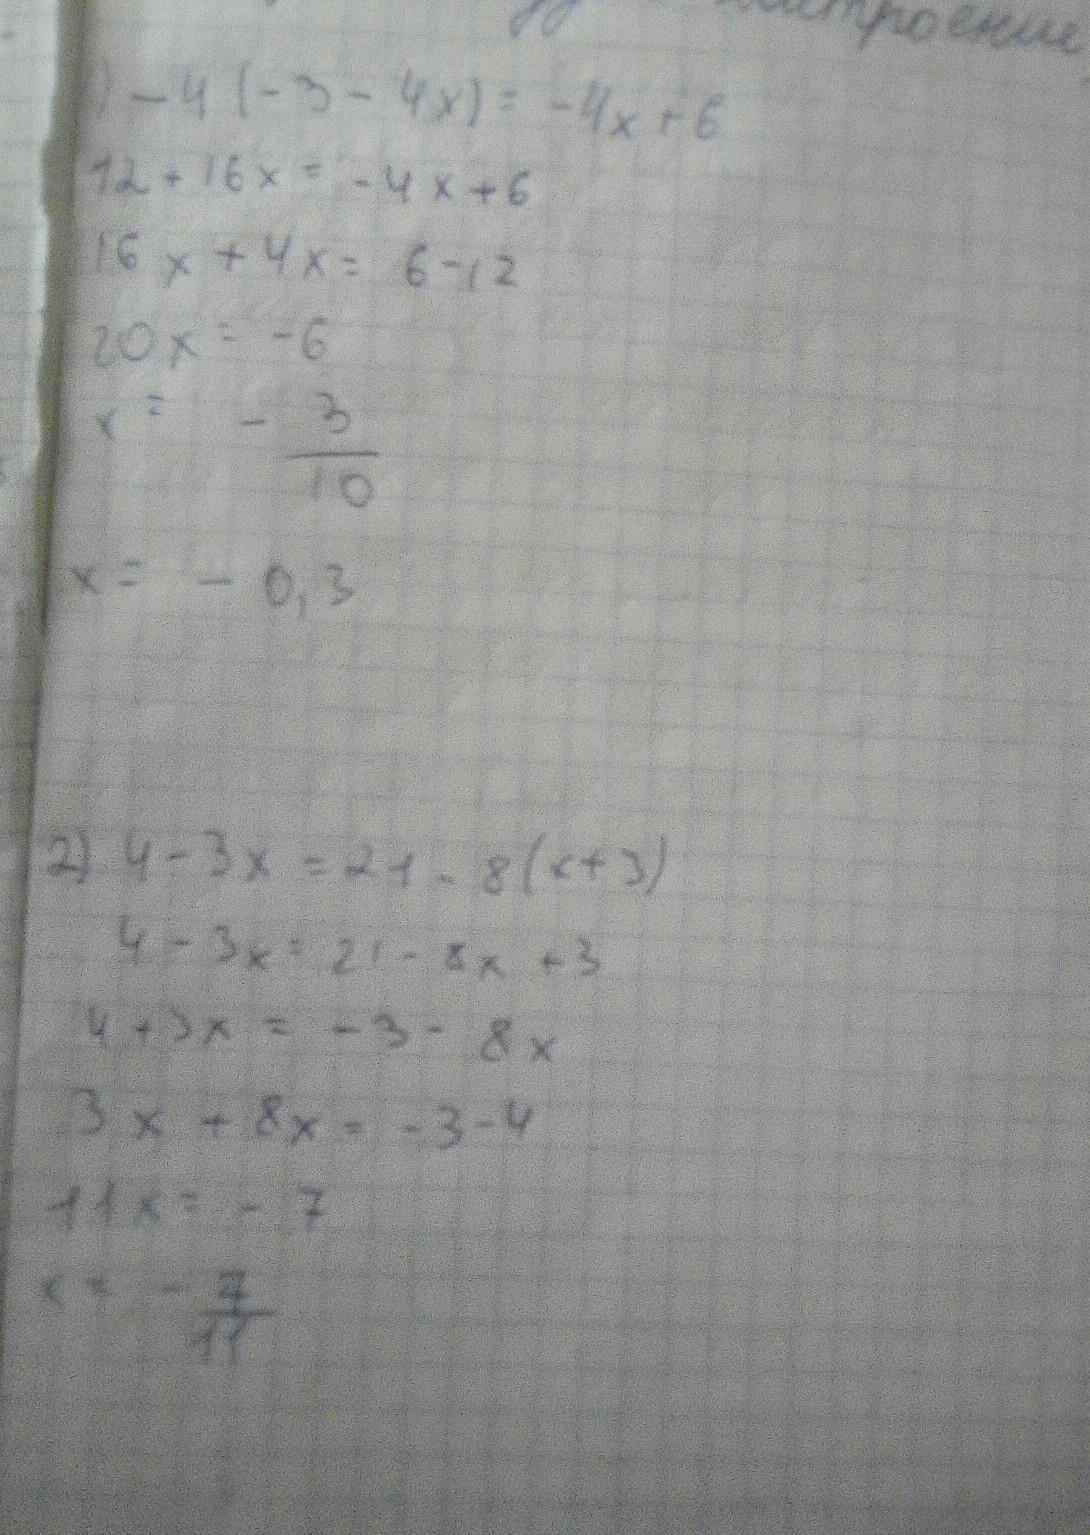 настроение
) -4(-3-4x) = -4x+6
12+16x = -4x+6
16x+4x = 6-12
20x = -6
x = - 3/10
x = - 0,3
2) 4-3x = 21-8(x+3)
4-3x = 21-8x+3
4+3x = -3-8x
3x+8x = -3-4
11x = -7
x = - 7/11